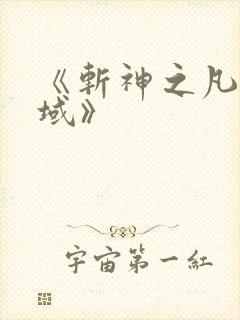 《斬神之凡
域》
宇宙第一紅